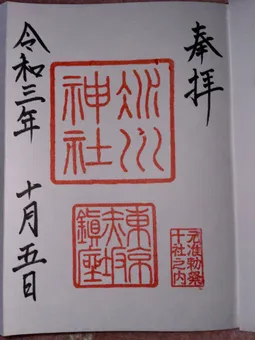 奉拝
氷川神社
東京赤坂鎮座
元准勅祭十社之内
令和三年 十月五日